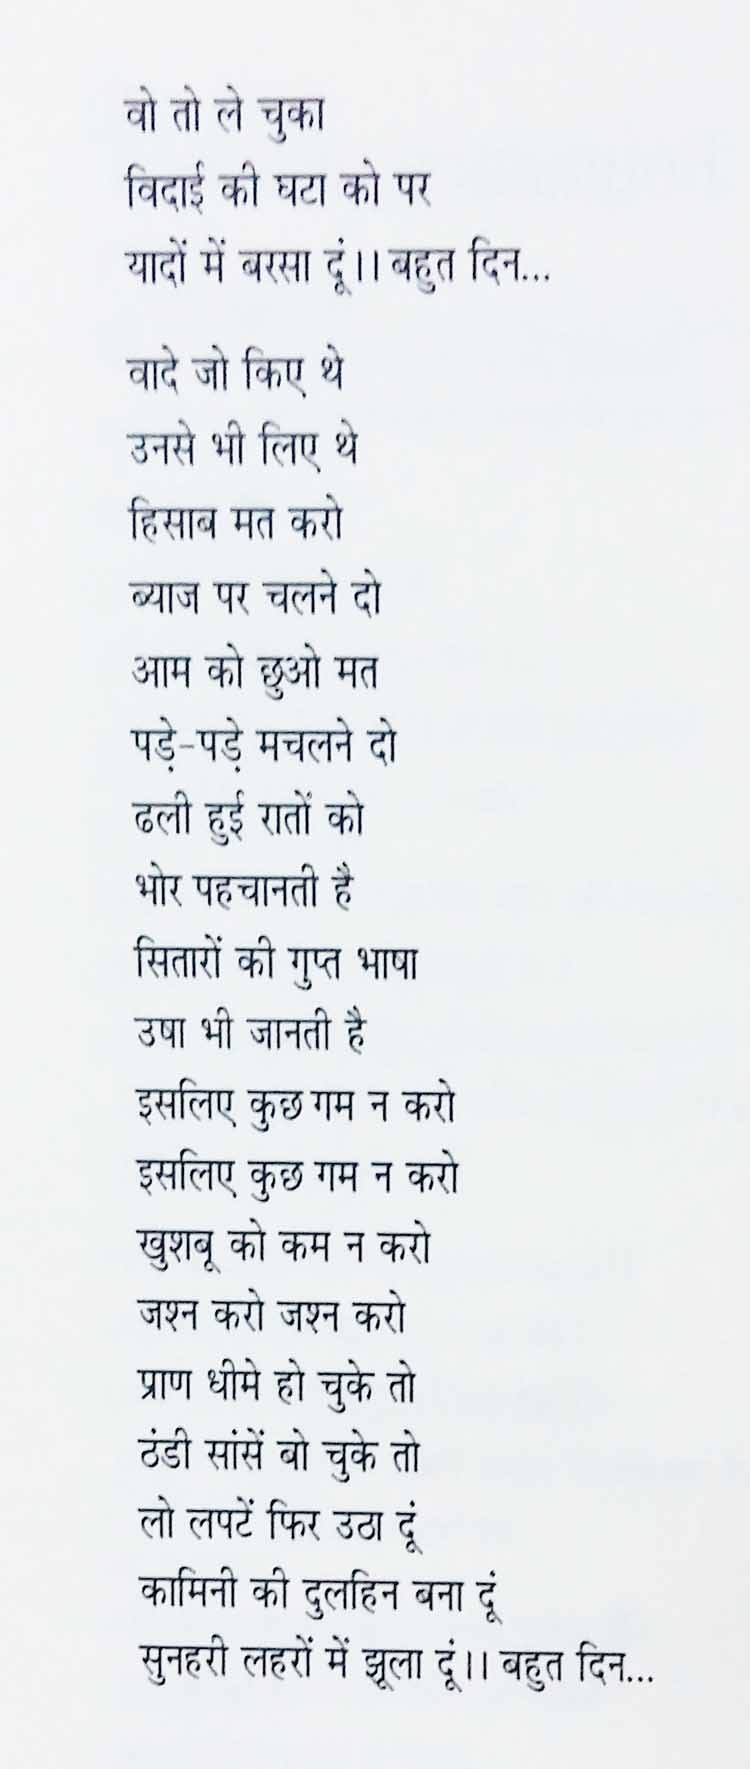 वो तो ले चुका
विदाई की घटा को पर
यादों में बरसा दूं।। बहुत दिन...
वादे जो किए थे
उनसे भी लिए थे
हिसाब मत करो
ब्याज पर चलने दो
आम को छुओ मत
पड़े-पड़े मचलने दो
ढली हुई रातों को
भोर पहचानती है
सितारों की गुप्त भाषा
उषा भी जानती है
इसलिए कुछ गम न करो
इसलिए कुछ गम न करो
खुशबू को कम न करो
जश्न करो जश्न करो
प्राण धीमे हो चुके तो
ठंडी सांसें बो चुके तो
लो लपटें फिर उठा दूं
कामिनी की दुलहिन बना दूं
सुनहरी लहरों में झूला दूं।। बहुत दिन...